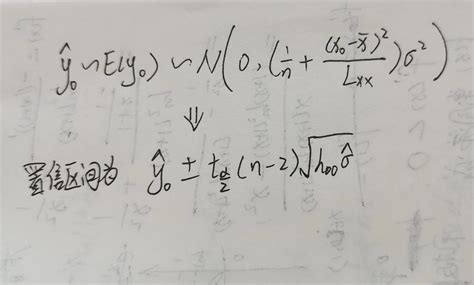 ŷ₀ ~ E(y₀) ~ N(0, (1/n + (x₀ - x̄)²/Lxx)σ²)
⇓
置信区间为 ŷ₀ ± t_{α/2}(n-2)√(h₀₀σ̂)